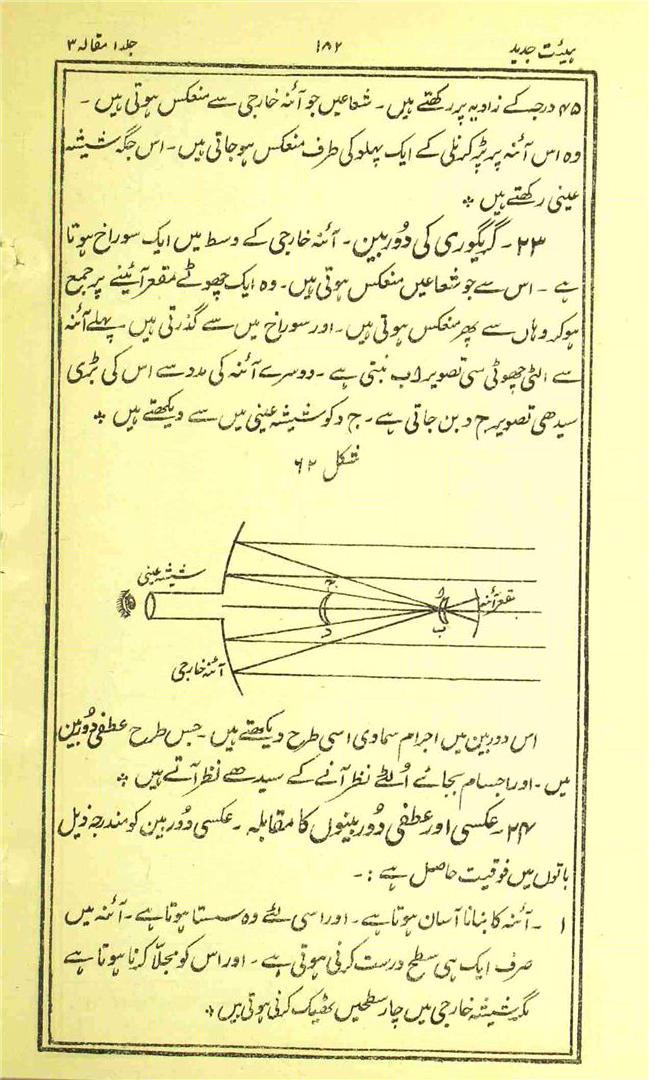 ہیئت جدید ۱۸۲ جلد ۱ مقالہ ۳
۴۵ درجہ کے زاویہ پر رکھتے ہیں۔ شعاعیں جو آئنہ خارجی سے منعکس ہوتی ہیں۔
وہ اس آئنہ پر پڑ کر نلی کے ایک پہلو کی طرف منعکس ہوجاتی ہیں۔ اس جگہ شیشہ
عینی رکھتے ہیں ٭
۲۳۔ گریگوری کی دُوربین۔ آئنہ خارجی کے وسط میں ایک سوراخ ہوتا
ہے۔ اس سے جو شعاعیں منعکس ہوتی ہیں۔ وہ ایک چھوٹے مقعر آئینے پر جمع
ہوکر وہاں سے پھر منعکس ہوتی ہیں۔ اور سوراخ میں سے گذرتی ہیں۔ پہلے آئنہ
سے الٹی چھوٹی سی تصویر ا ب بنتی ہے۔ دوسرے آئنہ کی مدد سے اس کی بڑی
سیدھی تصویر ج د بن جاتی ہے۔ ج د کو شیشہ عینی میں سے دیکھتے ہیں ٭
شکل ۶۲
شیشہ عینی
ج
د
ا
ب
مقعر آئنہ
آئنہ خارجی
اس دوربین میں اجرام سماوی اسی طرح دیکھتے ہیں۔ جس طرح عطفی دُوربین
میں۔ اور اجسام بجائے اُلٹے نظر آنے کے سیدھے نظر آتے ہیں ٭
۲۴۔ عکسی اور عطفی دُوربینوں کا مقابلہ۔ عکسی دُوربین کو مندرجہ ذیل
باتوں میں فوقیت حاصل ہے :۔
۱ ۔ آئنہ کا بنانا آسان ہوتا ہے۔ اور اسی لئے وہ سستا ہوتا ہے۔ آئنہ میں
صرف ایک ہی سطح درست کرنی ہوتی ہے۔ اور اس کو مجلّا کرنا ہوتا ہے
مگر شیشہ خارجی میں چار سطحیں ٹھیک کرنی ہوتی ہیں ٭